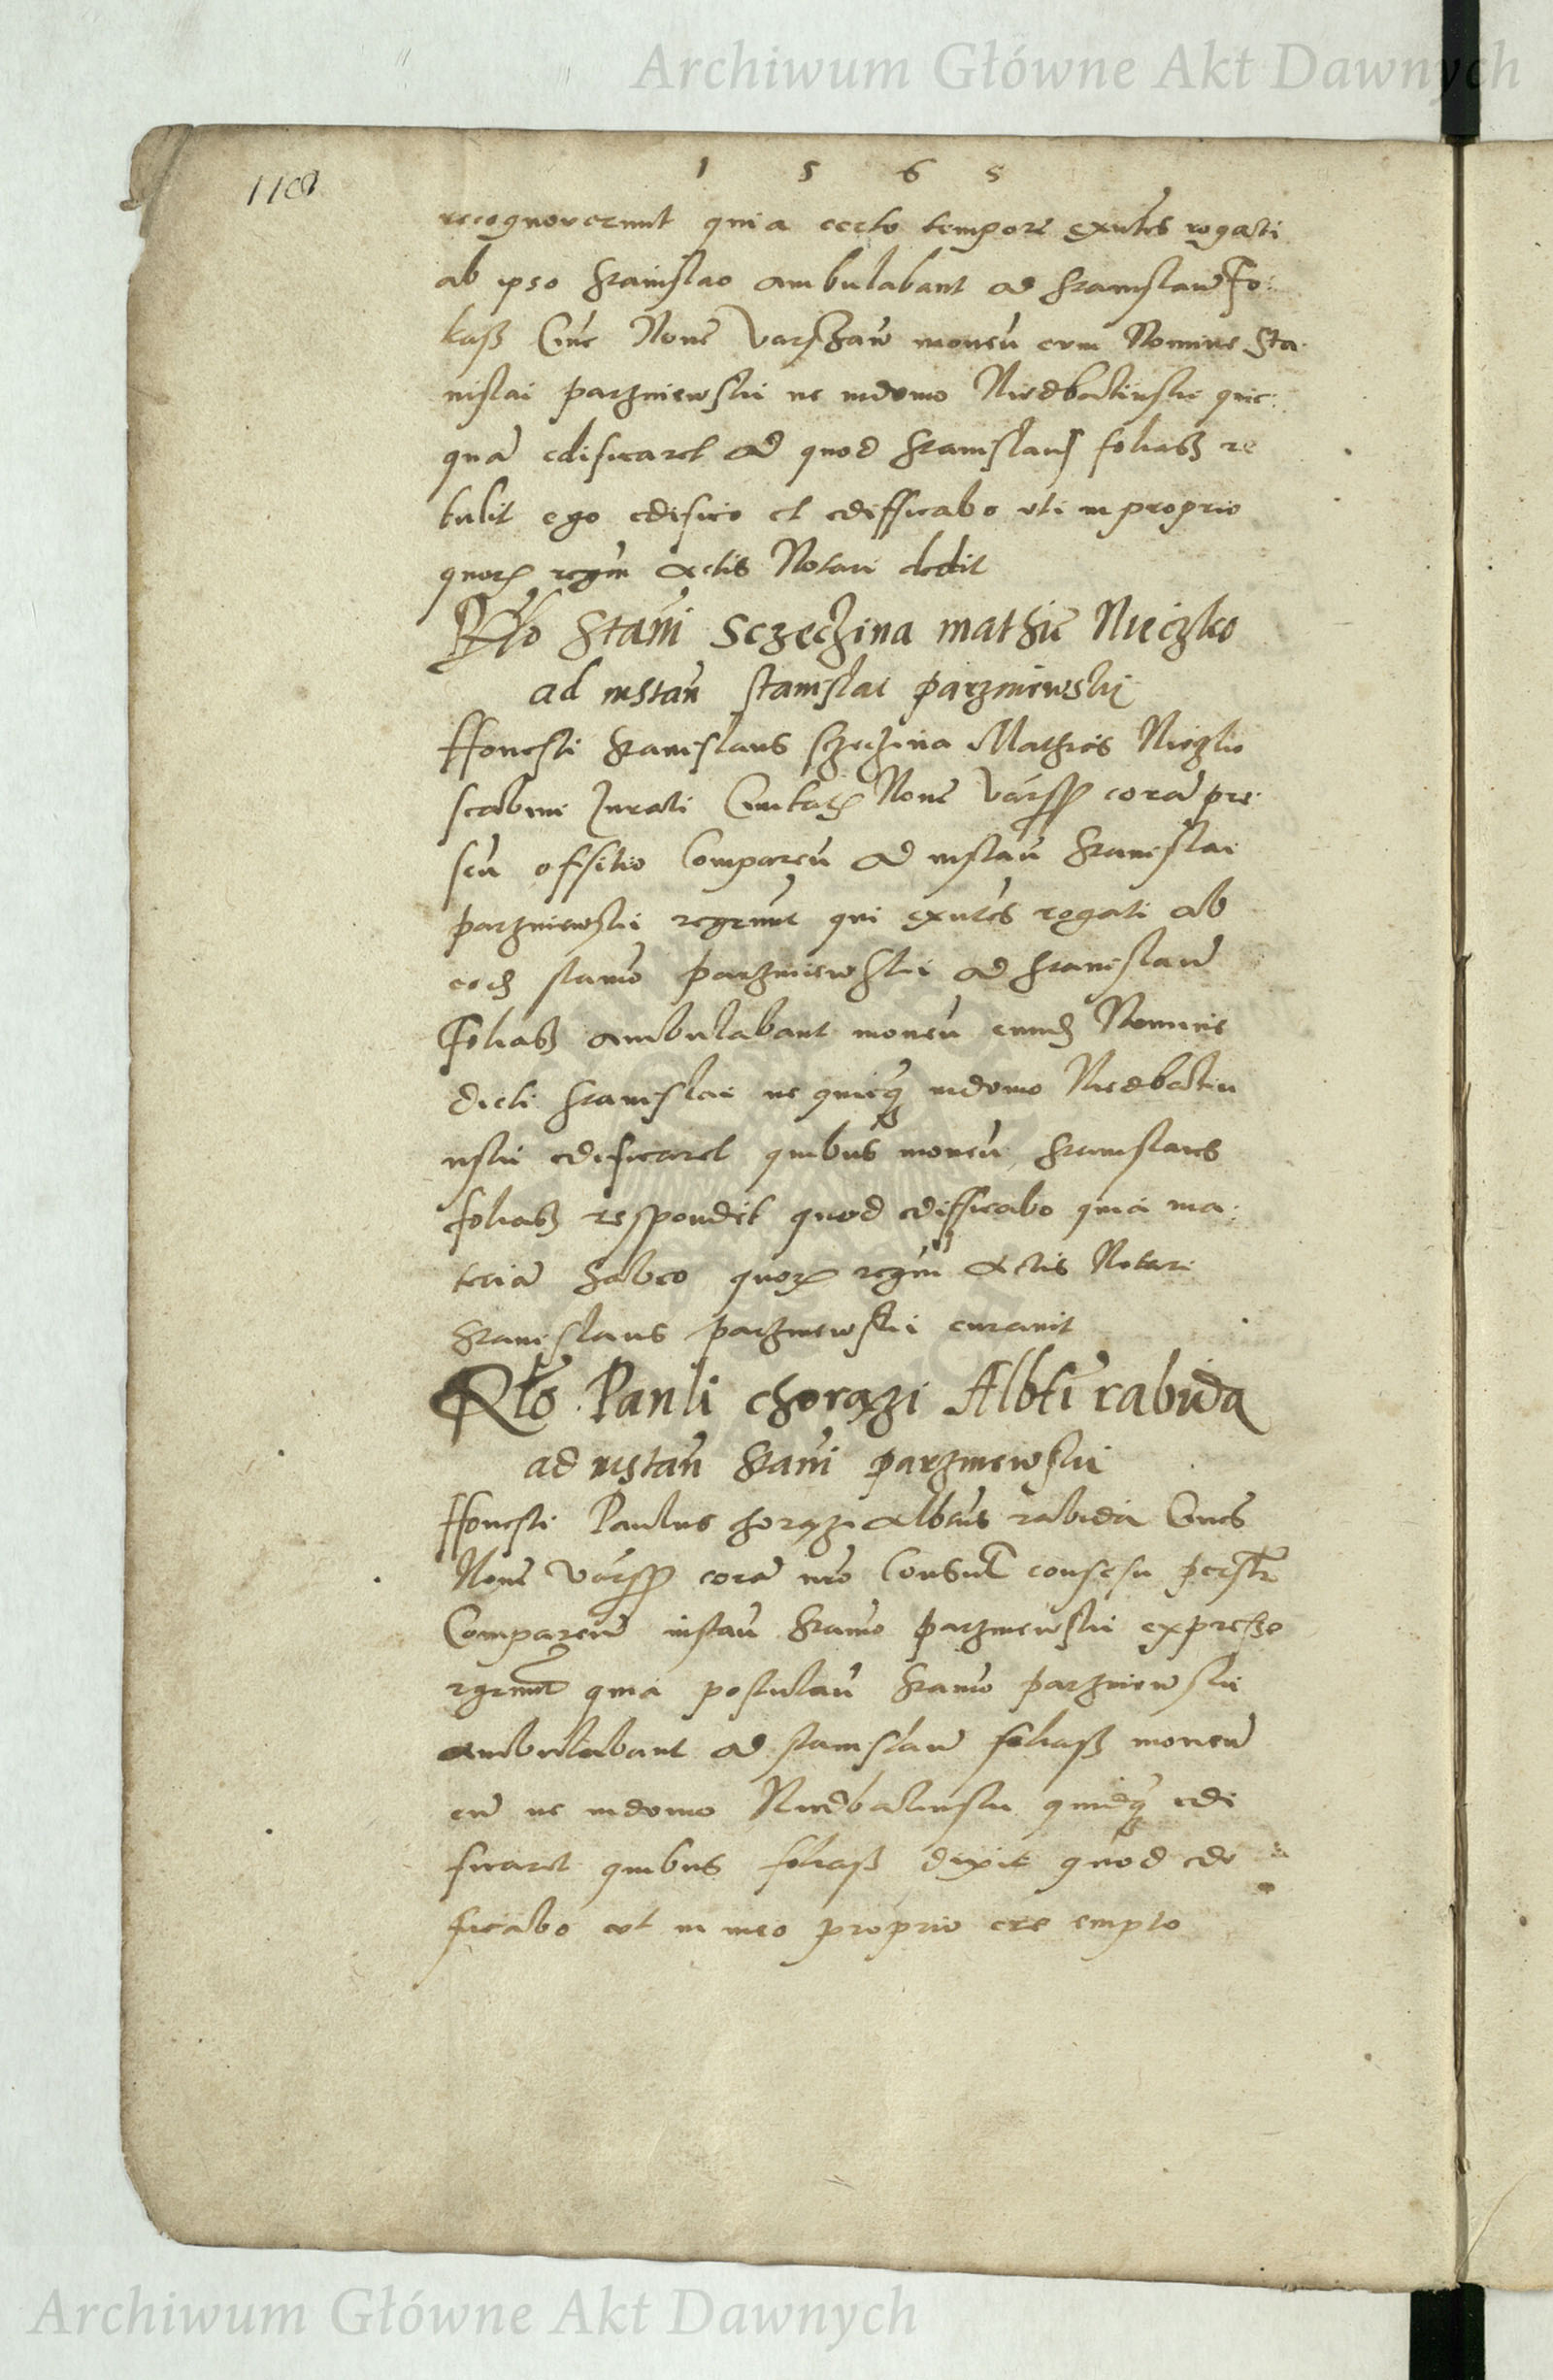 Archiwum Główne Akt Dawnych
1 5 6 5
1108
recognoverunt quia certo tempore exntes rogati
ab ipso Stanislao ambulabant ad Stanislaum Fo:
kasz Civē None Varschaw moneñ eum Nomine Sta-
nislai parzniewski ne in domo Niedbalinski quic:
quā edificaret ad quod Stanislaus fokasz re
tulit ego edifico et edifficabo uti in proprio
quorū regñi actis Notari dedit
Rło Stañi Sczechina mathie Nieczko
ad instañ stanislai parzniewski
Honesti Stanislaus Szczechina Mathias Nieczko
scabini Jurati Civitatis None Varss corā pre-
señ offitio Compareñ ad instañ Stanislai
parzniewski regrunt qui exntes rogati ab
eodē stano parzniewski ad Stanislaū
Fokasz ambulabant moneñ eundē Nomine
dicti Stanislai ne quicq̃ in domo Niedbalin
nski edificaret quibus moneñ Stanislaus
fokasz respondit quod edifficabo quia ma:
teriā habeo quorū regñi actis Notari
Stanislaus parzniewski curavit
Rło Pauli chorazi Albti rabida
ad instañ Stañi parzniewski
Honesti Paulus chorazi Albtus rabida Cives
None Varss corā nro Consul consesu perstr
Compareñ instañ Stano parzniewski expresse
rgrunt quia postulañ Stano parzniewski
ambulabant ad stanislaū fokasz moneñ
eū ne in domo Niedbalinski quidq̃ edi
ficaret quibus fokasz dixit quod edi
ficabo ut in meo proprio ere empto
Archiwum Główne Akt Dawnych